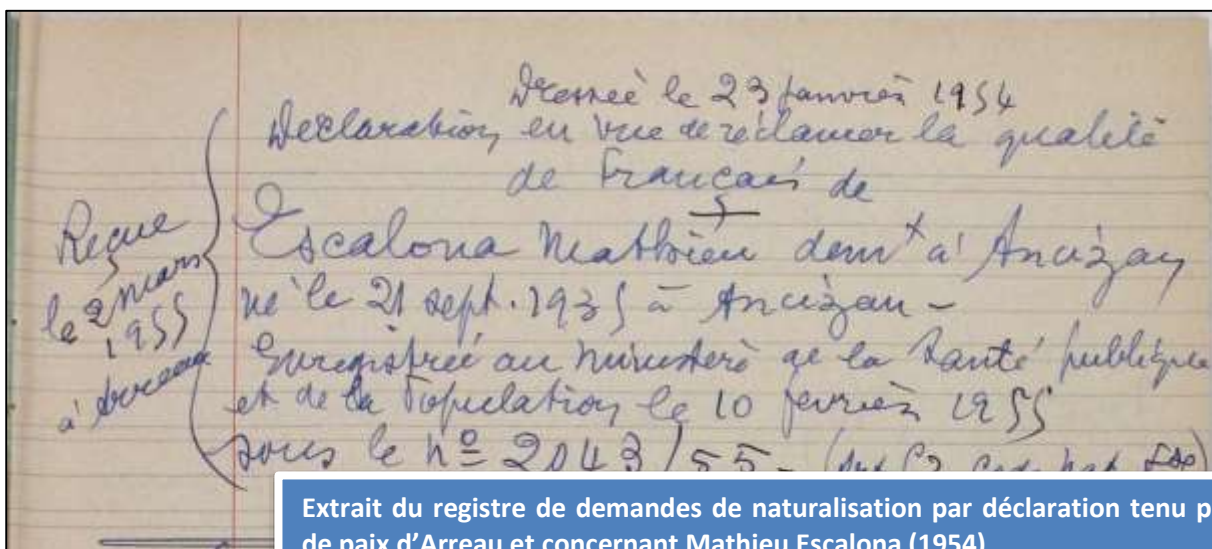 Dressée le 23 janvier 1954
Declaration en vue de réclamer la qualité
de Français de
Escalona Mathieu demt à Ancizan
né le 21 sept. 1935 à Ancizan -
Enregistrée au Ministère de la Santé publique
et de la Population le 10 fevrier 1955
sous le nº 2043/55 -
Reçue
le 2 mars
1955
à
Extrait du registre de demandes de naturalisation par déclaration tenu p
de paix d'Arreau et concernant Mathieu Escalona (1954)